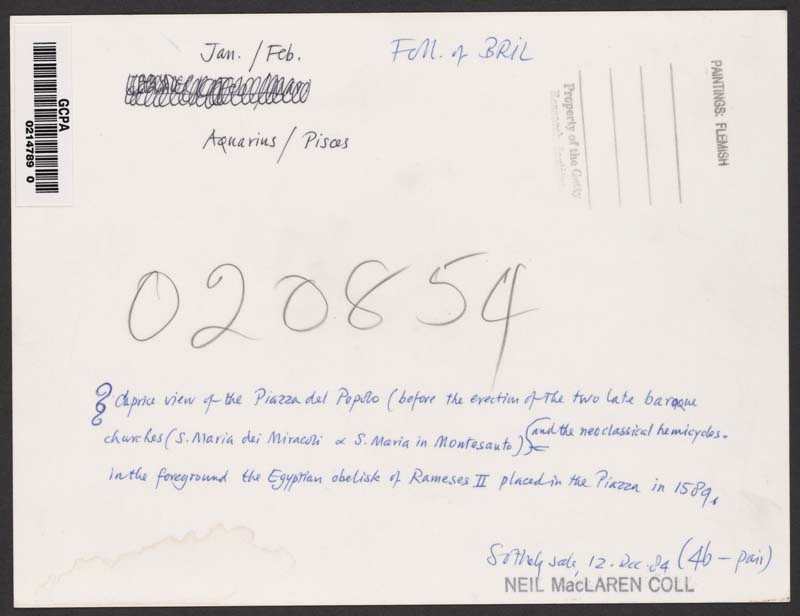 Jan. / Feb.
Foll. of BRIL
Aquarius / Pisces
GCPA
0214789 0
Property of the Getty
Research
PAINTINGS: FLEMISH
020854
? Caprice view of the Piazza del Popolo (before the erection of the two late baroque
churches (S. Maria dei Miracoli & S. Maria in Montesanto) (and the neoclassical hemicycles.
in the foreground the Egyptian obelisk of Rameses II placed in the Piazza in 1589.
Sotheby sale, 12. Dec. 84 (46 – pair)
NEIL MacLAREN COLL